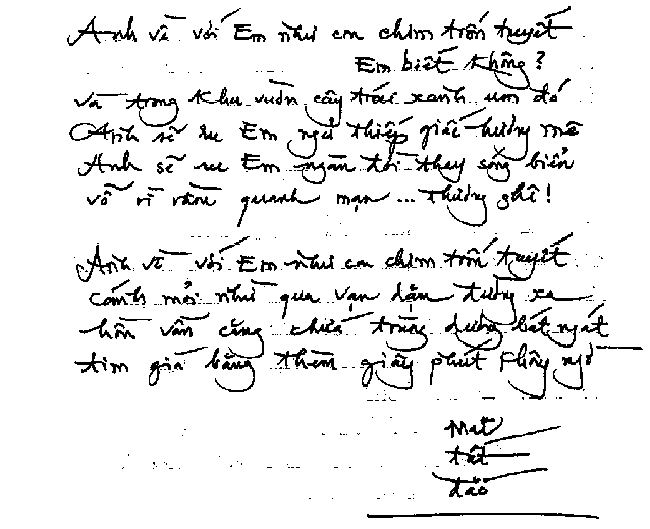 Anh về với Em như con chim trốn tuyết
Em biết không?
và trong khu vườn cây trái xanh um đó
Anh sẽ ru Em ngủ thiếp giấc hương mê
Anh sẽ ru Em ngàn lời thay sóng biển
vỗ rì rầm quanh mạn ... thương ghê!
Anh về với Em như con chim trốn tuyết
cánh mỏi như qua vạn dặm đường xa
hồn vẫn căng chưa trùng dương bát ngát
tim già bằng thêm giây phút không ngờ
tất
đảo